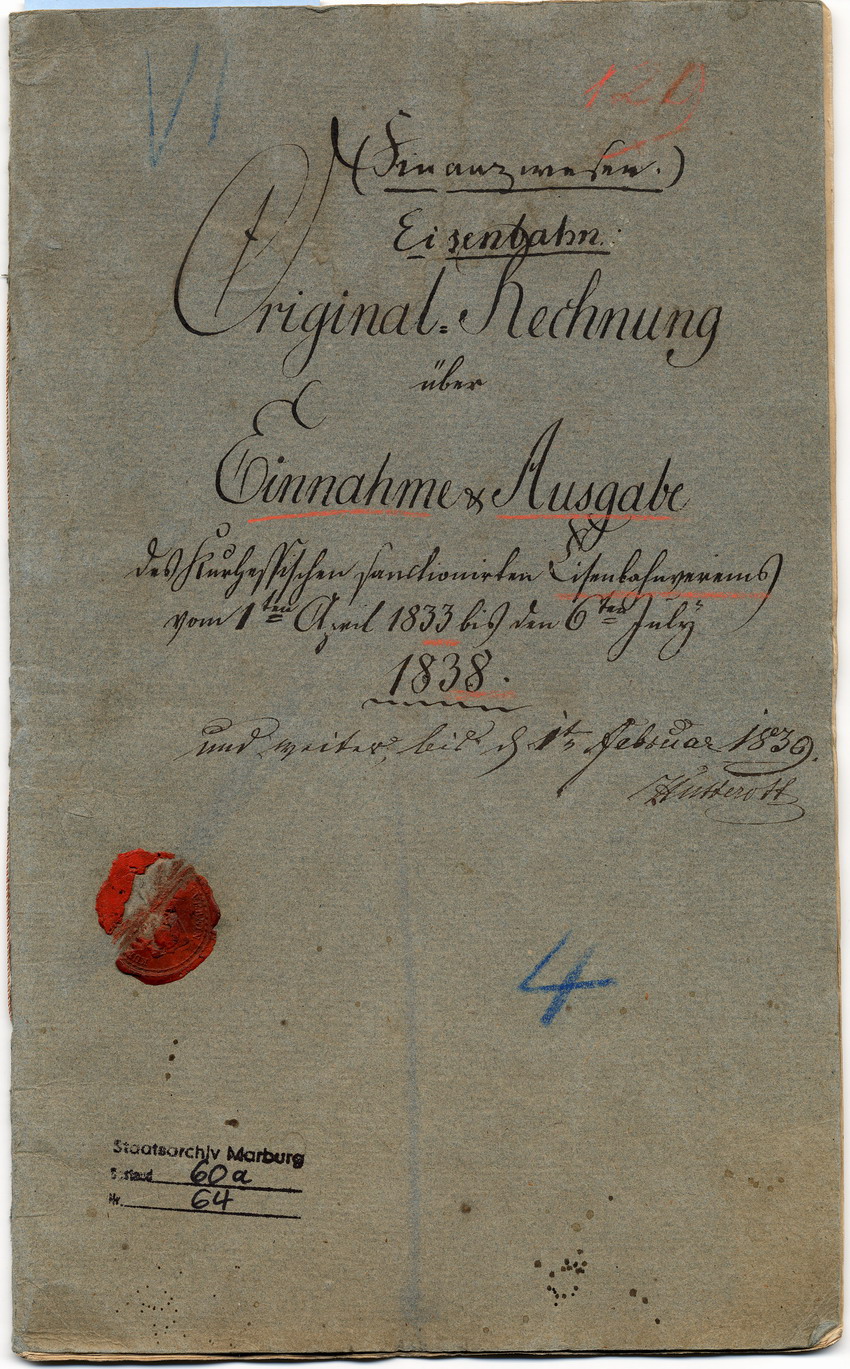 VI
121
(Finanzwesen.)
Eisenbahn.
Original=Rechnung
über
Einnahme & Ausgabe
des Kurhessischen sanctionirten Eisenbahnvereins
vom 1ten April 1833 bis den 6ten July
1838.
und weiter, bis d 1tn Februar 1839.
Hütteroth
4
Staatsarchiv Marburg
Bestand 60a
Nr. 64